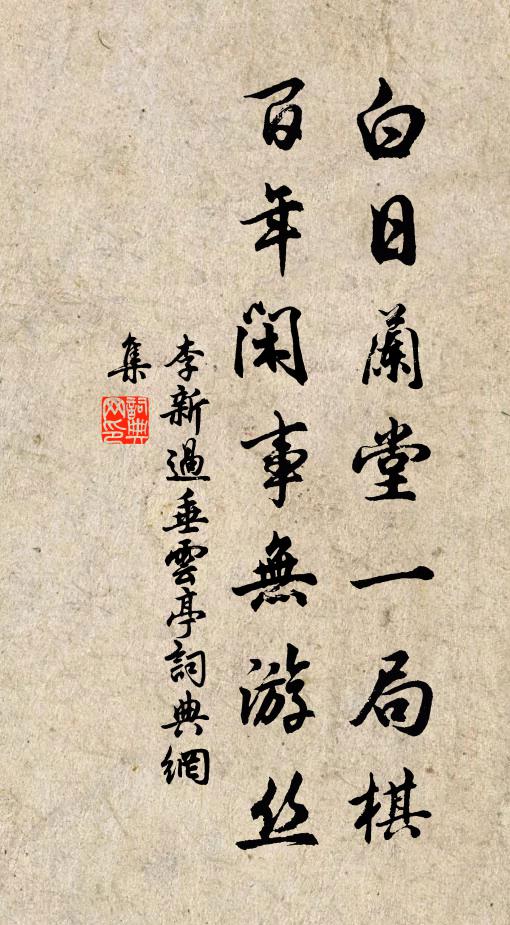 白日蘭堂一局棋
百年閑事無游丝
李新過垂雲亭詞典網
集
詞典網印